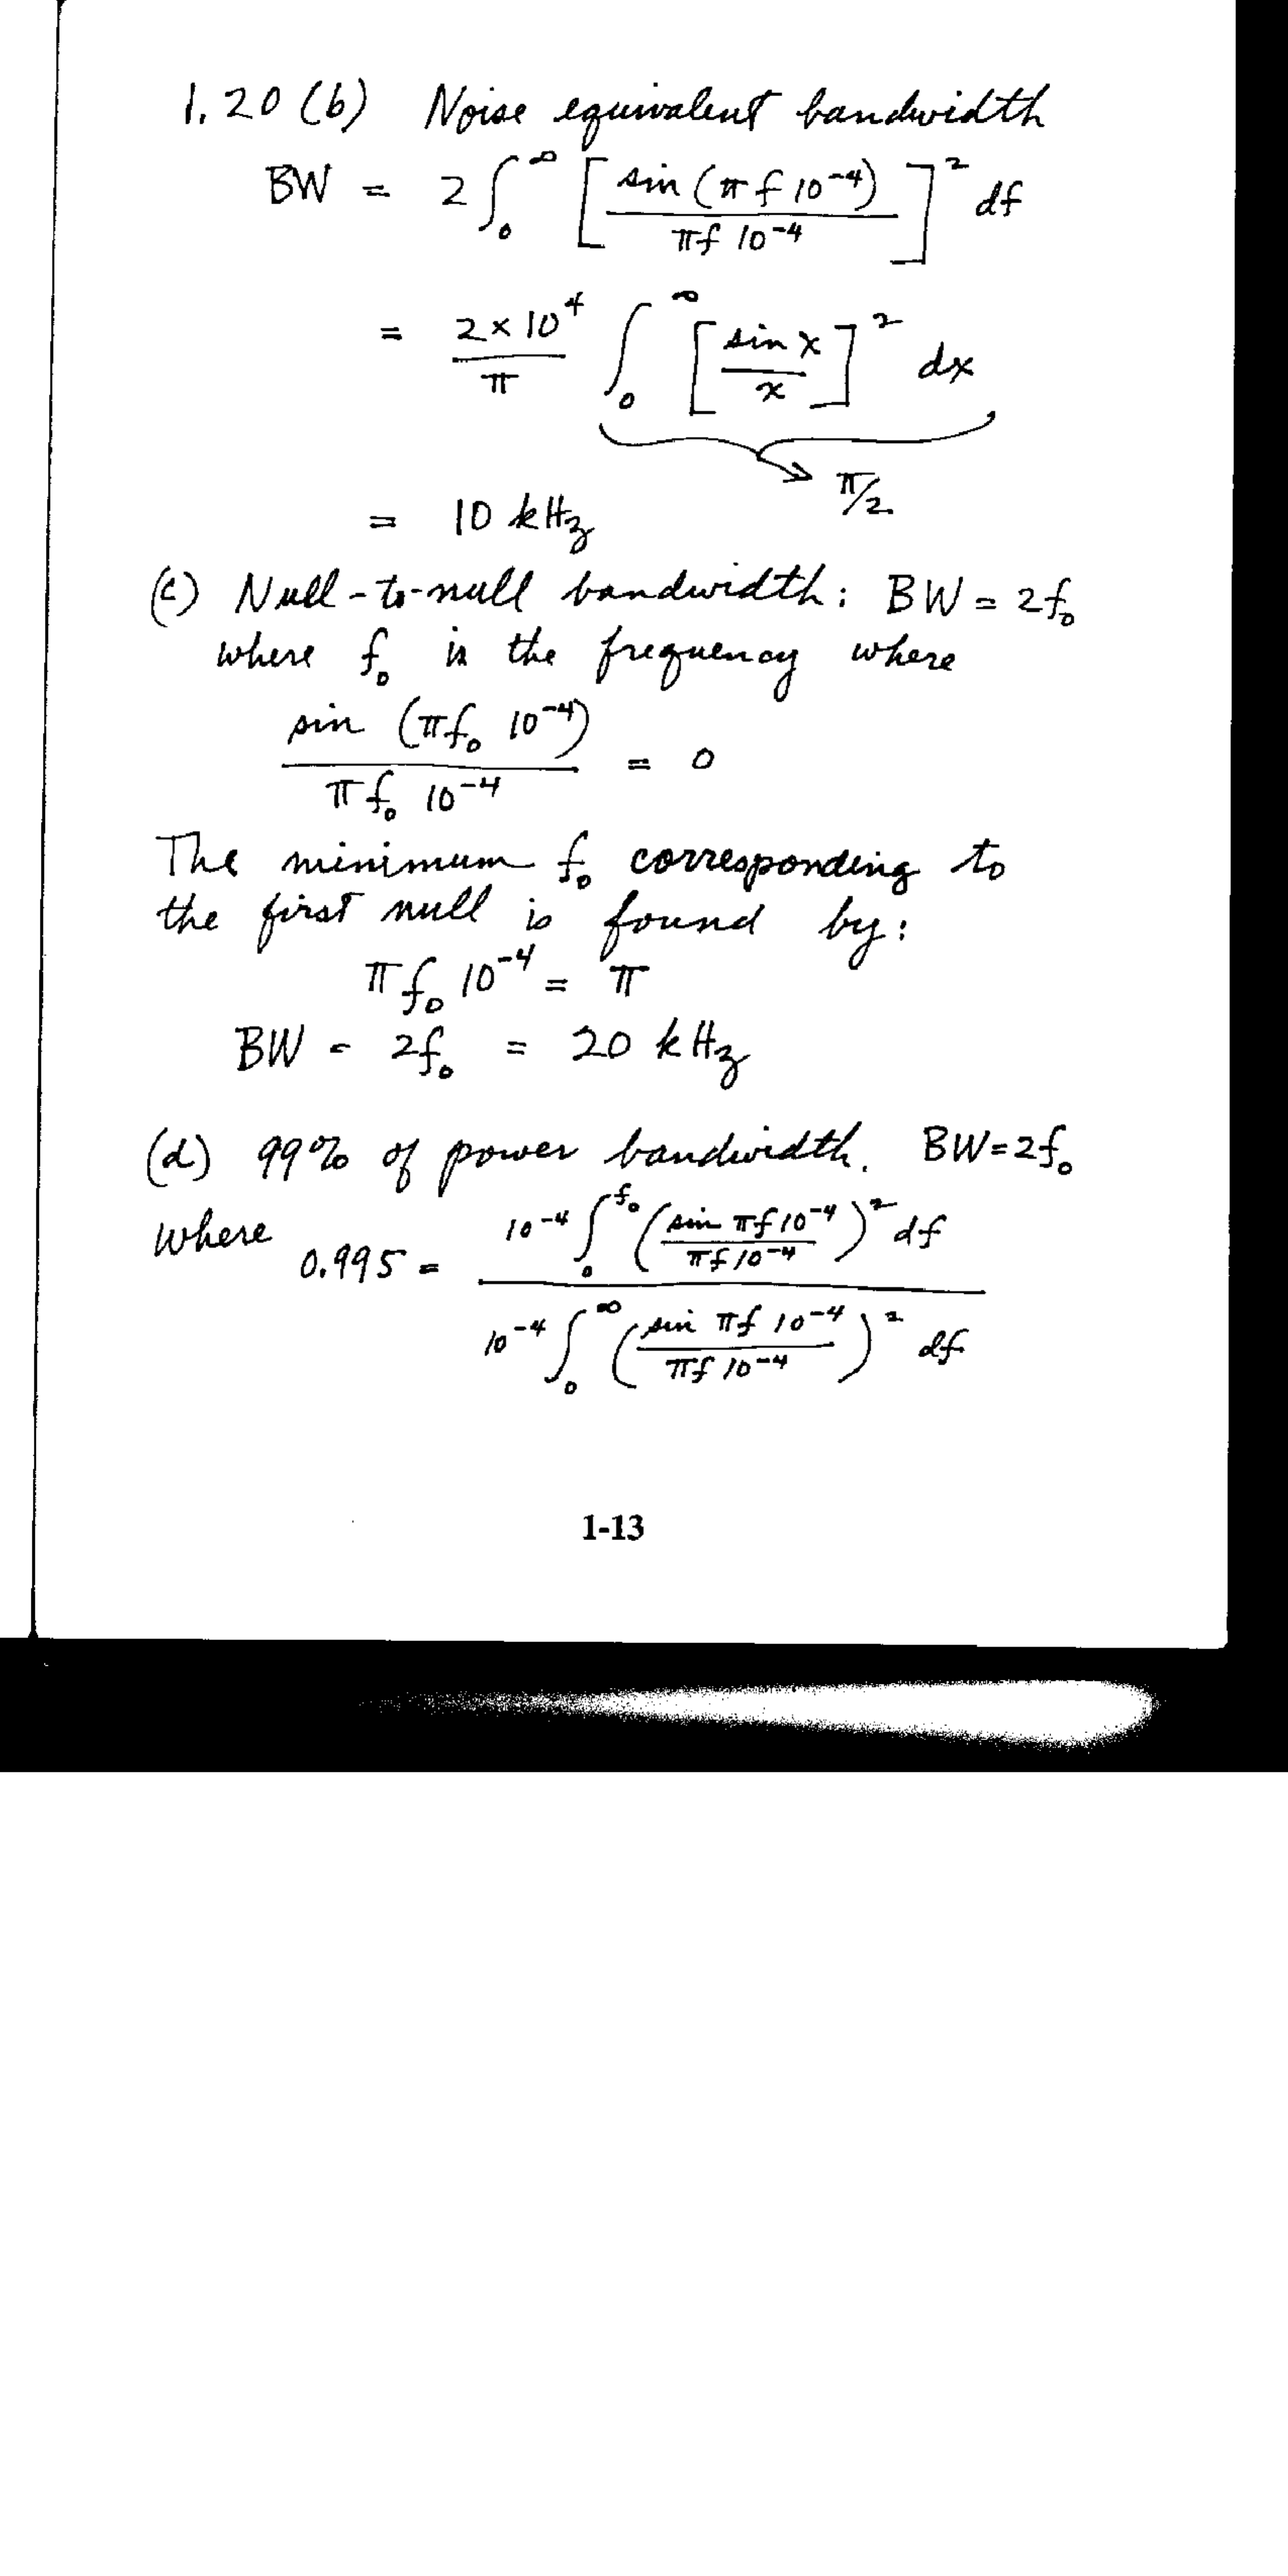 1.20 (b) Noise equivalent bandwidth
BW = 2 ∫₀^∞ [ sin (π f 10⁻⁴) / πf 10⁻⁴ ]² df
= 2 × 10⁴ / π ∫₀^∞ [ sin x / x ]² dx
→ π/2
= 10 kHz
(c) Null-to-null bandwidth: BW = 2f₀
where f₀ is the frequency where
sin (πf₀ 10⁻⁴) / π f₀ 10⁻⁴ = 0
The minimum f₀ corresponding to
the first null is found by:
π f₀ 10⁻⁴ = π
BW = 2f₀ = 20 kHz
(d) 99% of power bandwidth. BW=2f₀
where 0.995 = 10⁻⁴ ∫₀^f₀ ( sin πf 10⁻⁴ / πf 10⁻⁴ )² df / 10⁻⁴ ∫₀^∞ ( sin πf 10⁻⁴ / πf 10⁻⁴ )² df
1-13